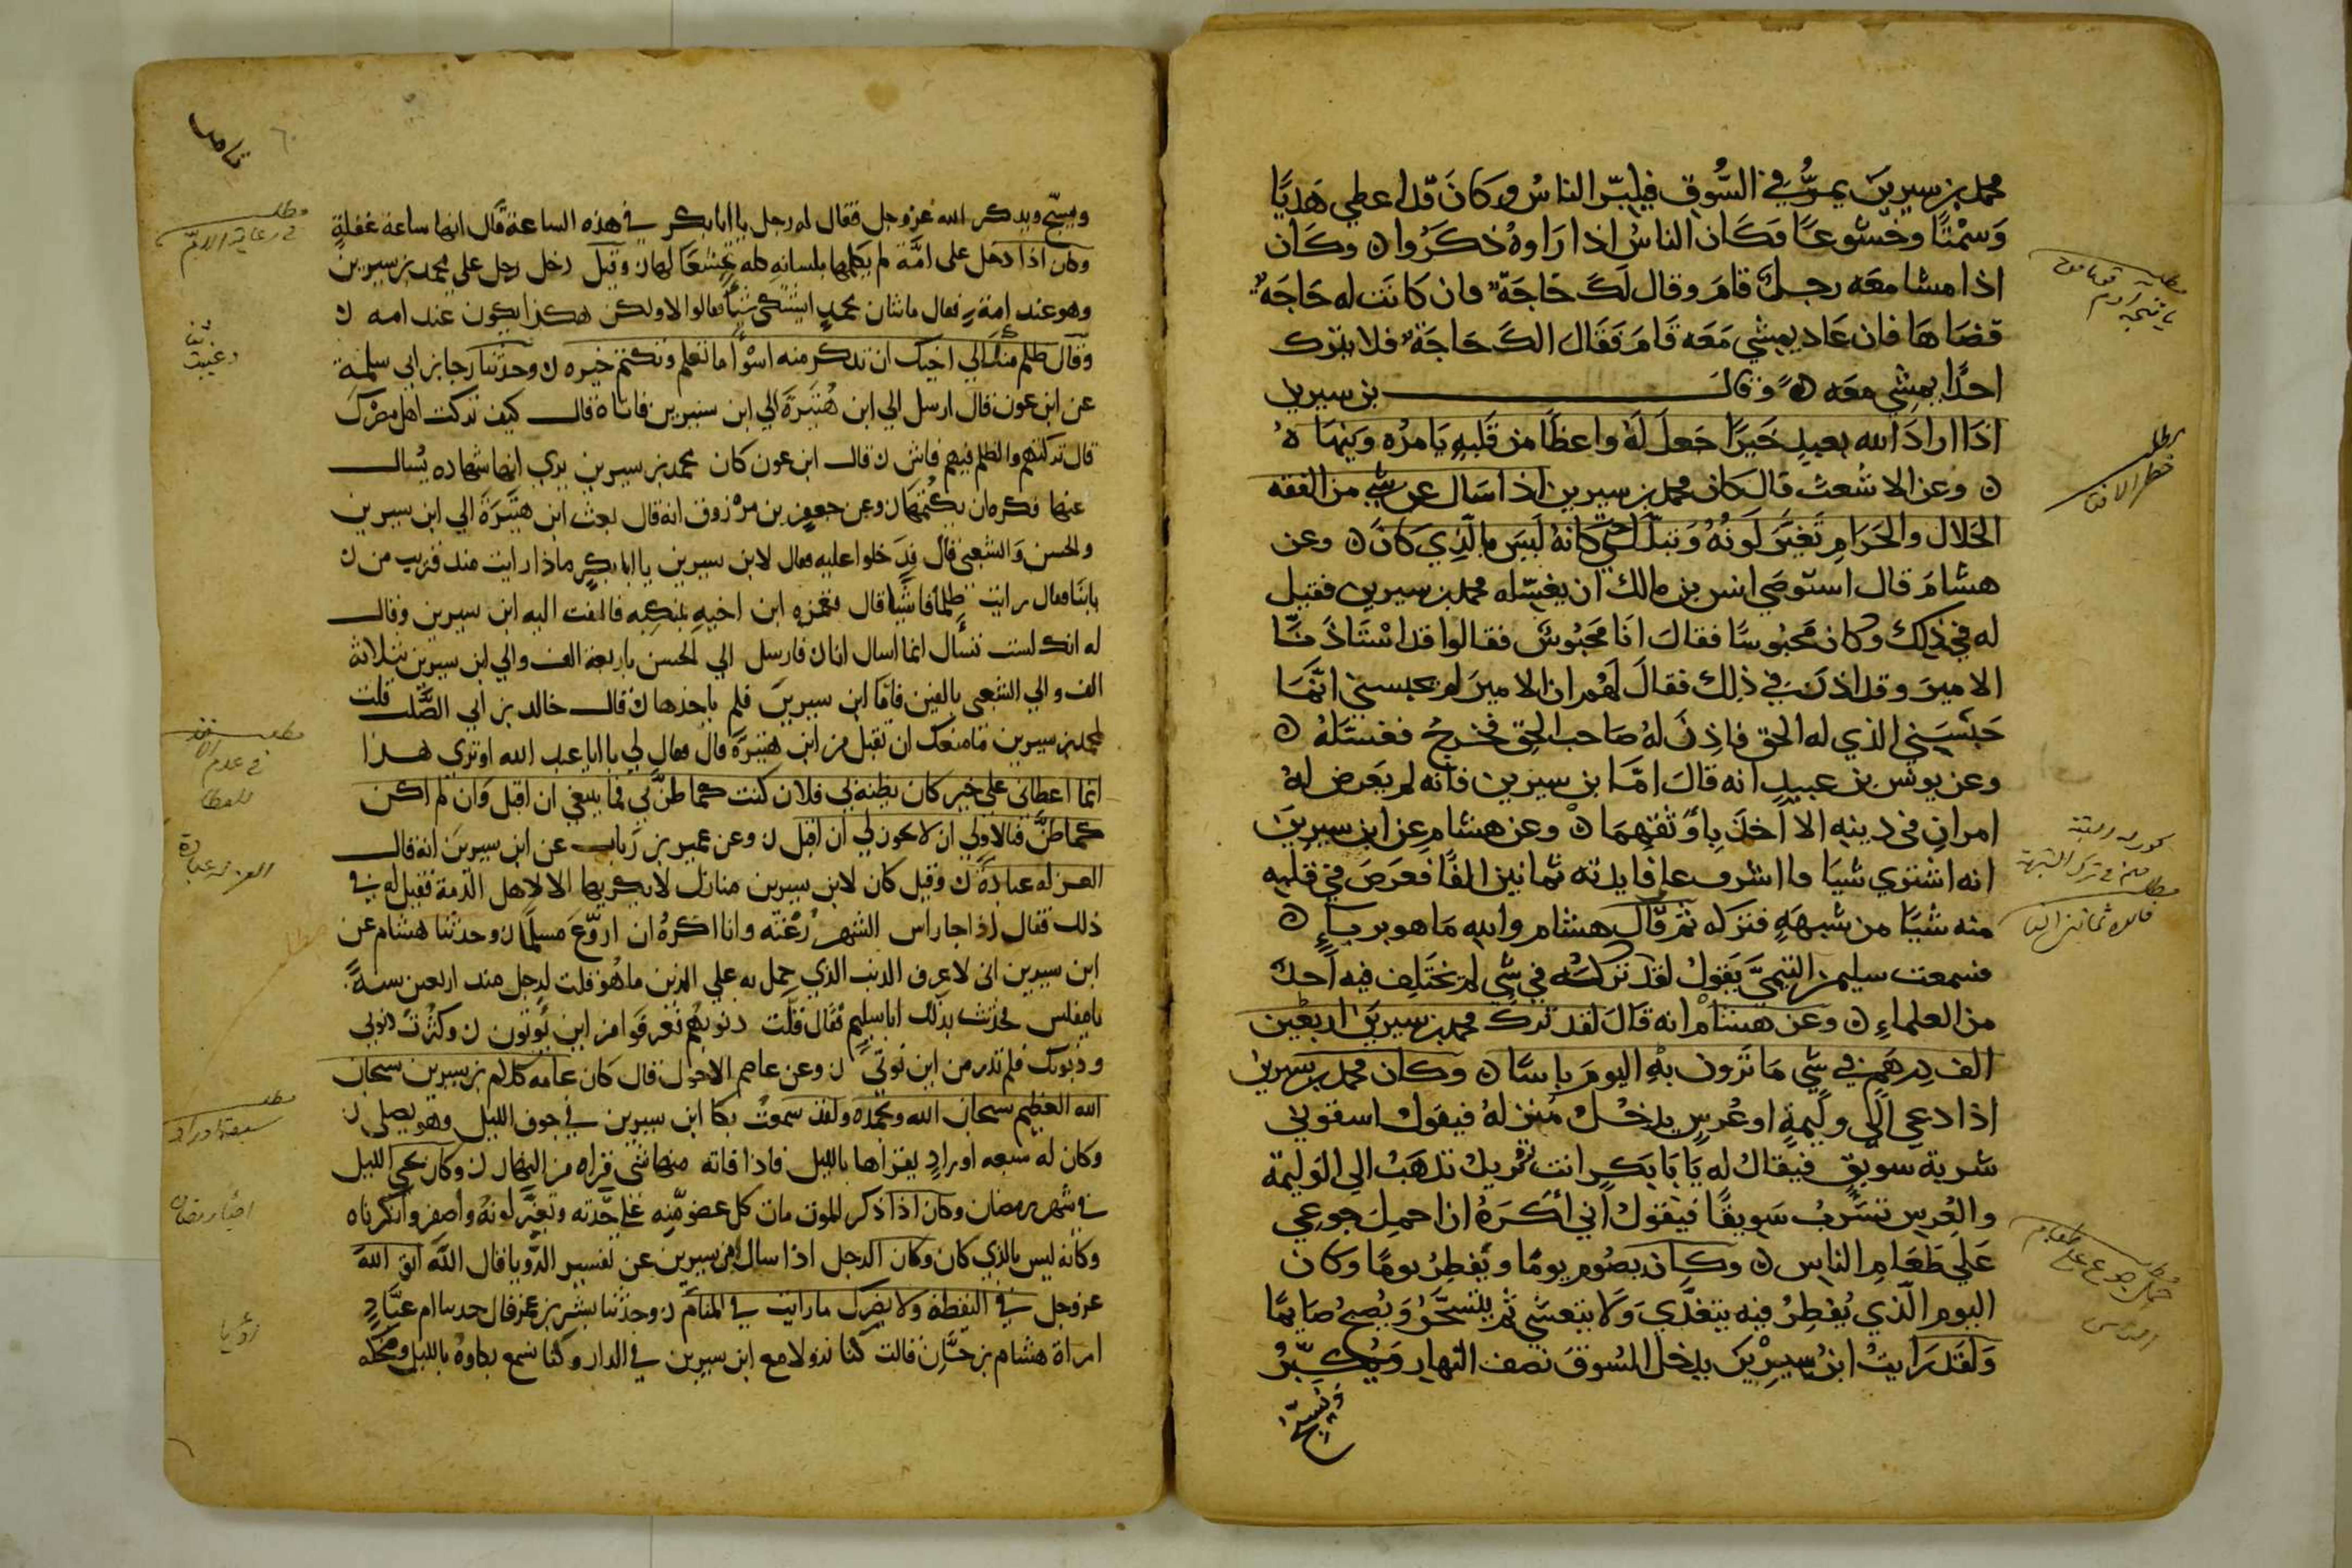 محمد بن سيرين يمر في السوق فيكبر الناس وكان قد اعطي هديا
وسمتا وخشوعا فكان الناس اذا راوه ذكروا ه وكان
اذا مشا معه رجل قام وقال لك حاجة فان كانت له حاجة
قضاها فان عاد يمشي معه قام فقال الك حاجة فلا يترك
احدا يمشي معه ه وقال بن سيرين
اذا اراد الله بعبد خيرا جعل له واعظا من قلبه يامره وينهاه
ه وعن الاشعث قال كان محمد بن سيرين اذا سال عن شي من الفقه
الحلال والحرام تغير لونه وتبدل حتي كانه ليس بالذي كان ه وعن
هشام قال استوصي انس بن مالك ان يغسله محمد بن سيرين فقيل
له في ذلك وكان محبوسا فقال انا محبوس فقالوا قد استاذنا
الامير وقد اذن في ذلك فقال لهم ان الامير لم يحبسني انما
حبسني الذي له الحق فاذن له صاحب الحق فخرج فغسله ه
وعن يونس بن عبيد انه قال اما ابن سيرين فانه لم يعرض له
امران في دينه الا اخذ باوثقهما ه وعن هشام عن ابن سيرين
انه اشتري شيا فاشرف علي فايدته ثمانين الفا فعرض في قلبه
منه شيا من شبهه فتركه ثم قال هشام والله ما هو بربا ه
فسمعت سليمن التيمي يقول لقد تركته في شي لم يختلف فيه احد
من العلماء ه وعن هشام انه قال لقد ترك محمد بن سيرين اربعين
الف درهم في شي ما ترون به اليوم باسا ه وكان محمد بن سيرين
اذا دعي الي وليمة او عرس يدخل منزله فيقول اسقوني
شربة سويق فيقال له يابا بكر انت تريد تذهب الي الوليمة
والعرس تشرب سويقا فيقول اني اكره ان احمل جوعي
علي طعام الناس ه وكان يصوم يوما ويفطر يوما وكان
اليوم الذي يفطر فيه يتغدي ولا يتعشي ثم يتسحر ويصبح صايما
ولقد رايت ابن سيرين يدخل السوق نصف النهار ويكبر
ويسبح
ويسبح ويذكر الله عز وجل فقال له رجل يا ابا بكر في هذه الساعة قال انها ساعة غفلة
وكان اذا دخل على امه لم يكلمها بلسانه كله تخشعا لها ه وقيل دخل رجل علي محمد بن سيرين
وهو عند امه فقال ما شان محمد ايشتكي شيا فقالوا لا ولكن هكذا يكون عند امه ه
وقال ظلم منك الي اخيك ان تذكر منه اسوا ما تعلم وتكتم خيره ه وحدثنا رجا بن ابي سلمة
عن ابن عون قال ارسل الي ابن هبيرة الي ابن سيرين فاتاه قال كيف تركت اهل مصرك
قال تركتهم والظلم فيهم فاش ه قال ابن عون كان محمد بن سيرين يري انها شهاده يسال
عنها فكره ان يكتمها ه وعن جعفر بن مرزوق انه قال بعث ابن هبيرة الي ابن سيرين
والحسن والشعبي قال فدخلوا عليه فقال لابن سيرين يا ابا بكر ماذا رايت منذ قربت من
بابنا فقال رايت ظلما فاشيا قال فغمزه ابن اخيه بمنكبه فالتفت اليه ابن سيرين وقال
له انك لست تسال انما اسال انا ه فارسل الي الحسن باربعة الف والي ابن سيرين بثلاثة
الف والي الشعبي بالفين فاما ابن سيرين فلم ياخذها ه قال خالد بن ابي الصلت قلت
لمحمد بن سيرين ما منعك ان تقبل من ابن هبيرة قال فقال لي يا ابا عبد الله او تري هذا
انما اعطاني علي خير كان يظنه بي فلان كنت كما ظن بي فما ينبغي ان اقبل وان لم اكن
كما ظن فبالاولي ان لا يكون لي ان اقبل ه وعن عمير بن رباب عن ابن سيرين انه قال
العزله عبادة ه وقيل كان لابن سيرين منازل لا يكريها الا لاهل الذمة فقيل له في
ذلك فقال اذا جا راس الشهر رعته وانا اكره ان اروع مسلما ه وحدثنا هشام عن
ابن سيرين اني لاعرف الذنب الذي حمل به علي الدين ما هو قلت لرجل منذ اربعين سنة
يا مفلس فحدثت بذلك ابا سليم فقال قلت ذنوبهم فعرفوا من اين يوتون ه وكثرت ذنوبي
وذنوبك فلم ندر من اين نوتي ه وعن عاصم الاحول قال كان عامه كلام بن سيرين سبحان
الله العظيم سبحان الله وبحمده ولقد سمعت بكا ابن سيرين في جوف الليل وهو يصلي ه
وكان له سبعه اوراد يقراها بالليل فاذا فاته منها شي قراه من النهار ه وكان يحي الليل
في شهر رمضان وكان اذا ذكر الموت مات كل عضو منه علي حدته وتغير لونه واصفر وانكرناه
وكانه ليس بالذي كان وكان الرجل اذا سال ابن سيرين عن تفسير الرويا قال الله اتق الله
عز وجل في اليقظة ولا يضرك ما رايت في المنام ه وحدثنا بشر بن عمر قال حدثنا ام عباد
امراة هشام بن حسان قالت كنا نزولا مع ابن سيرين في الدار وكنا نسمع بكاوه بالليل وضحكه